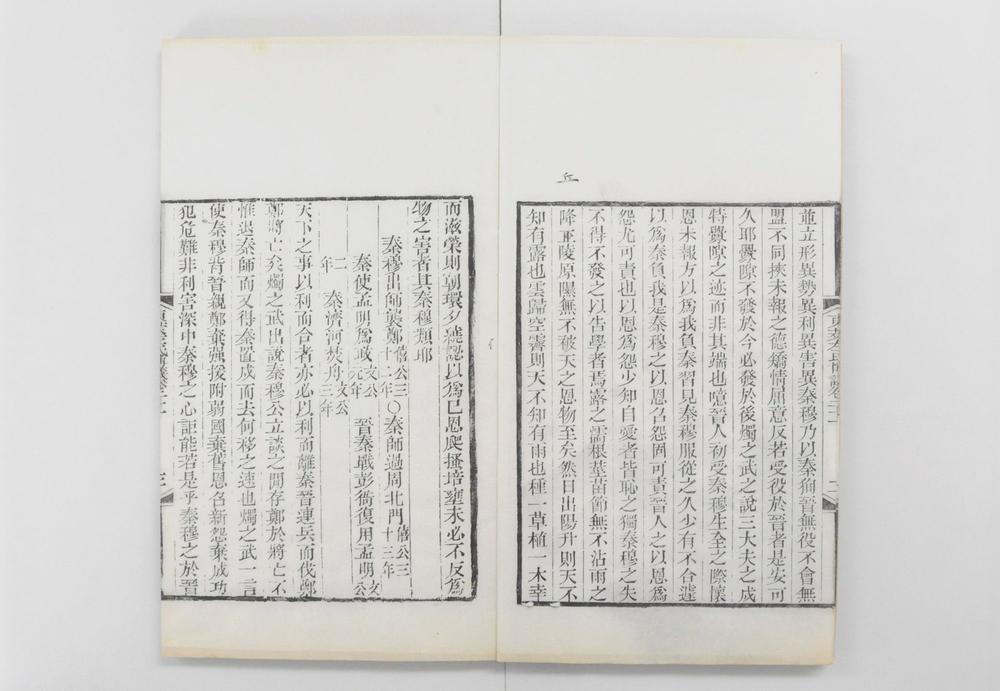 丘
並立形異勢異利異害異秦穆乃以秦狥晉無役不會無
盟不同挾未報之德矯情屈意反若受役於晉者是安可
久耶釁隙不發於今必發於後燭之武之說三大夫之戍
特釁隙之迹而非其端也噫晉人初受秦穆生全之際懷
恩未報方以爲我負秦習見秦穆服從之久少有不合遽
以爲秦負我是秦穆之以恩召怨固可責晉人之以恩爲
怨尤可責也以恩爲怨少知自愛者皆恥之獨秦穆之失
不得不發之以告學者焉露之濡根莖苗節無不沾雨之
降丘陵原隰無不破天之恩物至矣然日出陽升則天不
知有露也雲歸空霽則天不知有雨也種一草植一木幸
而滋榮則朝環夕繞認以爲已恩爬搔培壅未必不反爲
物之害者其秦穆類耶
秦穆出師襲鄭僖公三十二年○秦師過周北門僖公三十三年
秦使孟明爲政文公元年 晉秦戰彭衙復用孟明文公
二年 秦濟河焚舟文公三年
天下之事以利而合者亦必以利而離秦晉連兵而伐鄭
鄭將亡矣燭之武出說秦穆公立談之間存鄭於將亡不
惟退秦師而又得秦置戍而去何移之速也燭之武一言
使秦穆背晉親鄭棄强援附弱國棄舊恩召新怨棄成功
犯危難非利害深中秦穆之心詎能若是乎秦穆之於晉